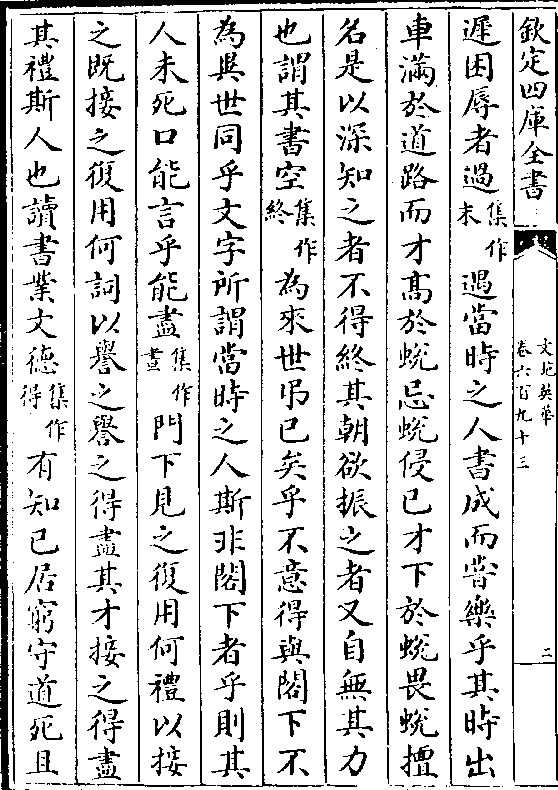 欽定四庫全書
文苑英華
卷六百九十三
三
遲困辱者過集作未遇當時之人書成而昔樂乎其時出
車滿於道路而才髙於蛻忌蛻侵已才下於蛻畏蛻擅
名是以深知之者不得終其朝欲振之者又自無其力
也謂其書空集作終為來世弔已矣乎不意得與閣下不
為異世同乎文字所謂當時之人斯非閣下者乎則其
人未死口能言乎能盡集作畫門下見之復用何禮以接
之既接之復用何詞以譽之譽之得盡其才接之得盡
其禮斯人也讀書業文德集作得有知已居窮守道死且